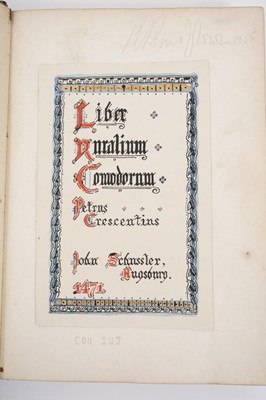 Liber
Ruralium
Comodorum
Petrus
Crescentius
John Schussler,
Augsburg.
1471